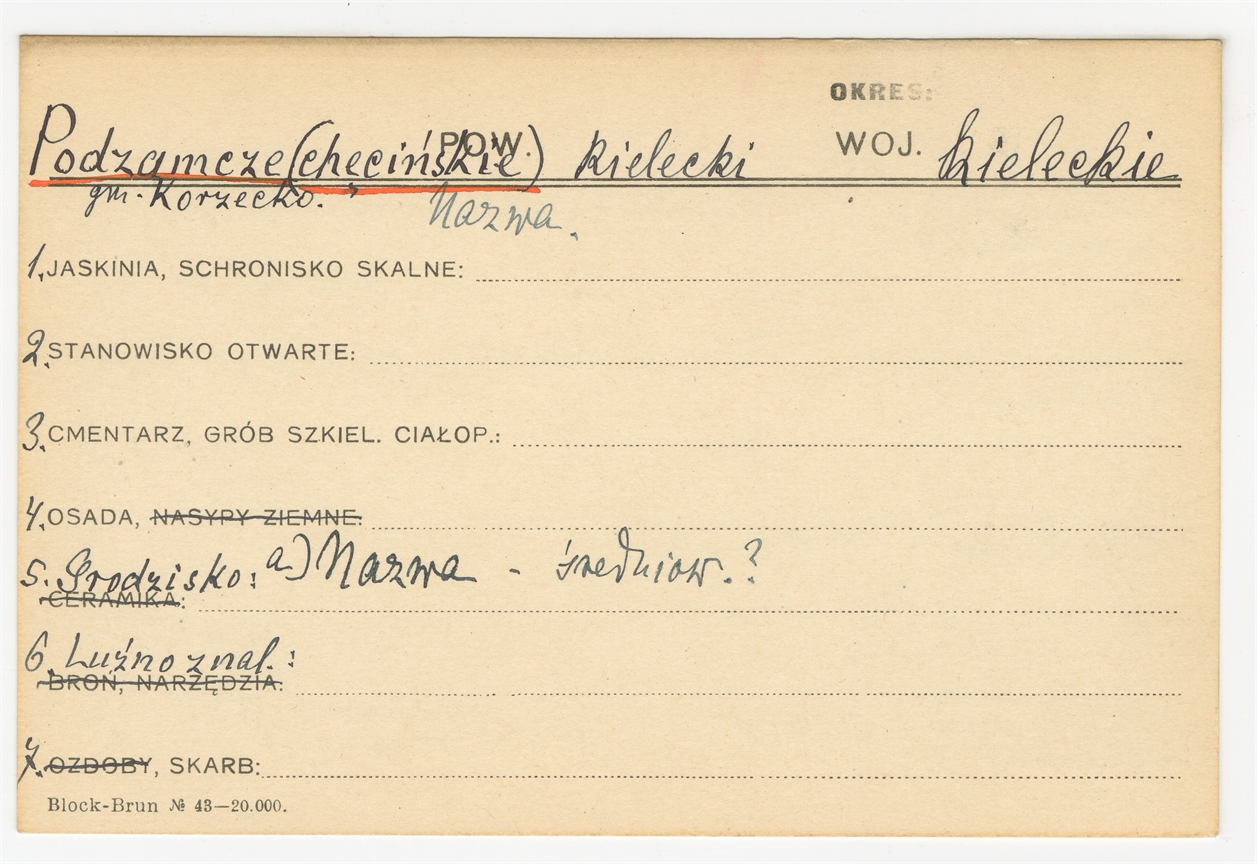 OKRES:
Podzamcze (chęcińskie) POW. kielecki WOJ. kieleckie
gm. Korzecko.
Nazwa.
1. JASKINIA, SCHRONISKO SKALNE:
2. STANOWISKO OTWARTE:
3. CMENTARZ, GRÓB SZKIEL. CIAŁOP.:
4. OSADA, NASYPY ZIEMNE:
5. Grodzisko: a) Nazwa - średniow.?
CERAMIKA:
6. Luźno znal.:
BROŃ, NARZĘDZIA:
7. OZDOBY, SKARB:
Block-Brun № 43—20.000.